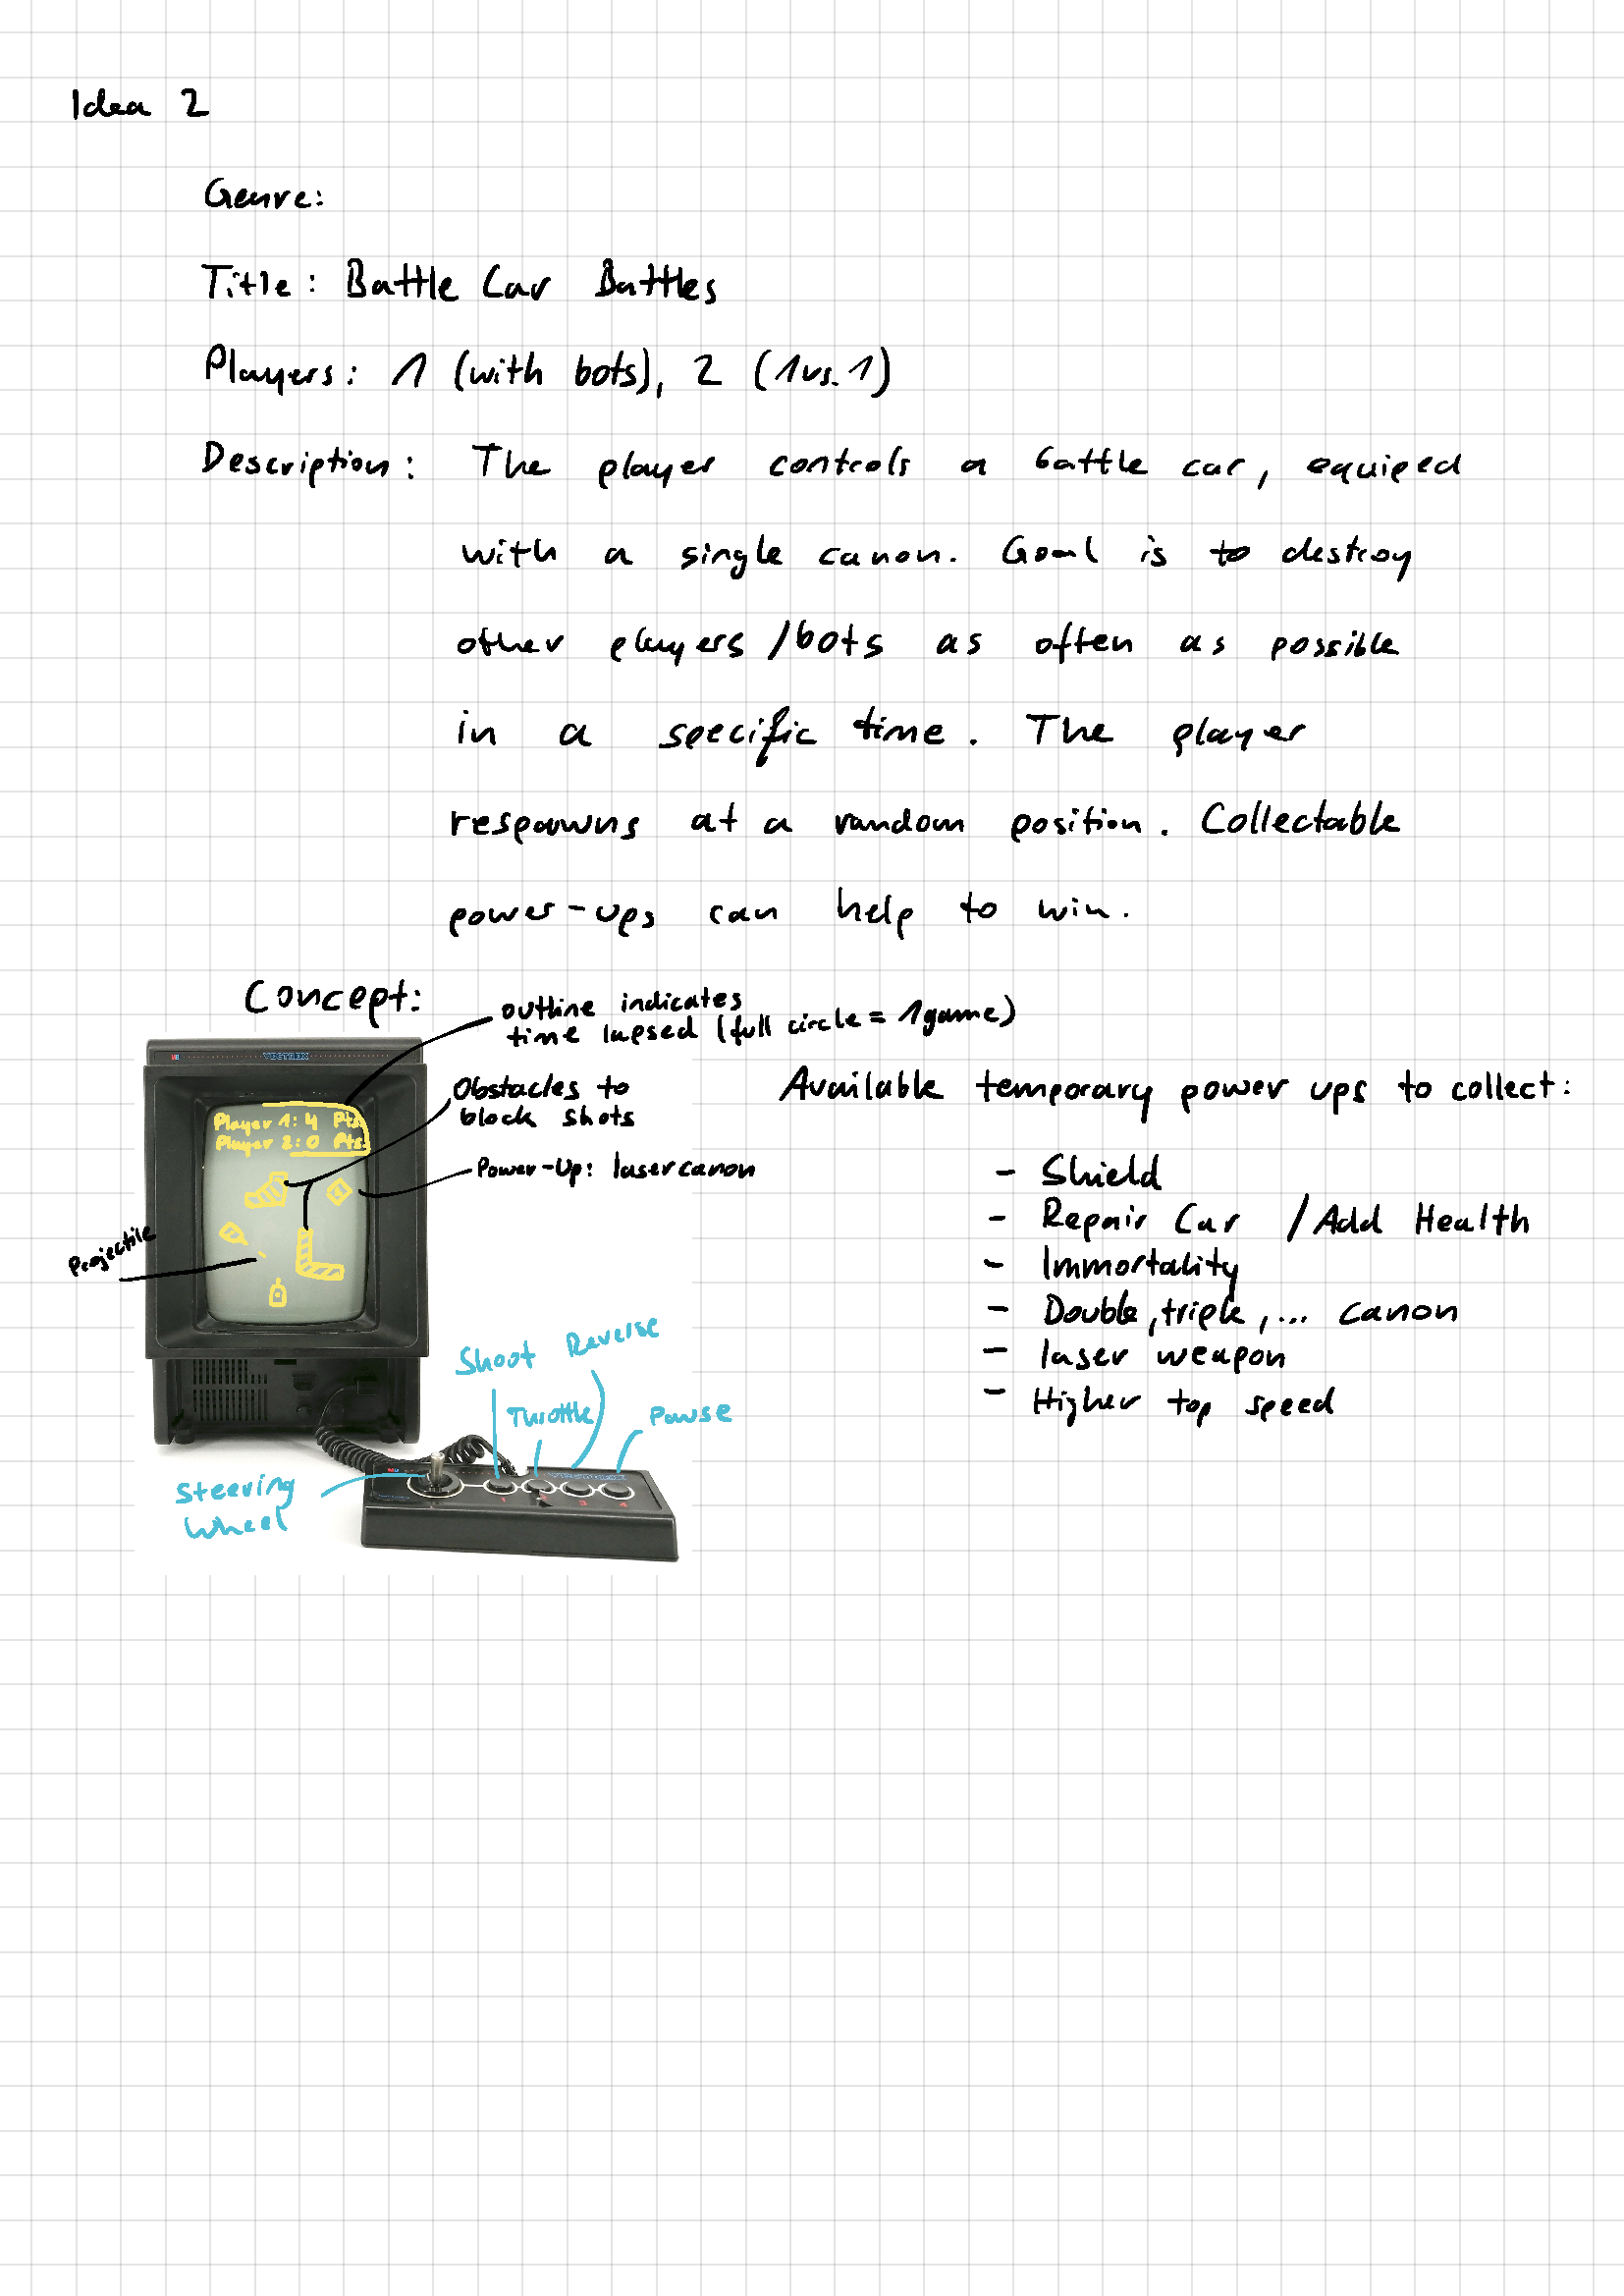 Idea 2
Genre:
Title: Battle Car Battles
Players: 1 (with bots), 2 (1vs.1)
Description: The player controls a battle car, equiped
with a single canon. Goal is to destroy
other players/bots as often as possible
in a specific time. The player
respawns at a random position. Collectable
power-ups can help to win.
Concept:
outline indicates
time lapsed (full circle = 1game)
Obstacles to
block shots
Power-Up: lasercanon
Projectile
VECTREX
Player 1: 4 Pts.
Player 2: 0 Pts.
Available temporary power ups to collect:
- Shield
- Repair Car / Add Health
- Immortality
- Double, triple, ... canon
- laser weapon
- Higher top speed
Shoot Reverse
Throttle
Pause
Steering
Wheel
1 2 3 4